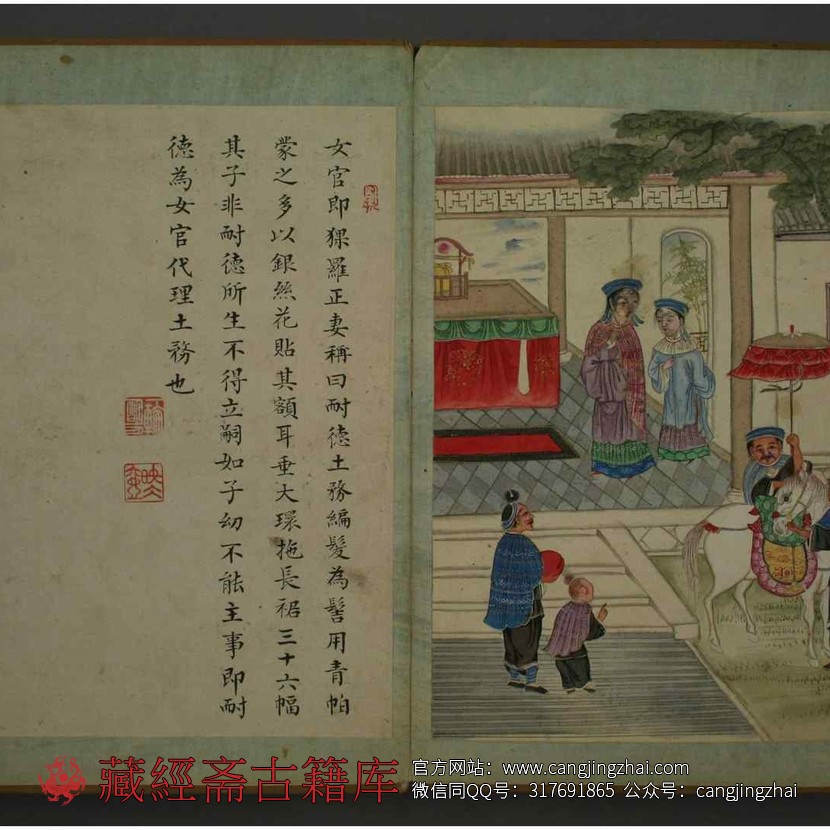 女官即猓羅正妻稱曰耐德土務編髮為髻用青帕
蒙之多以銀絲花貼其額耳垂大環拖長裙三十六幅
其子非耐德所生不得立嗣如子幼不能主事即耐
德為女官代理土務也
藏經斋古籍库
官方网站：www.cangjingzhai.com
微信同QQ号：317691865 公众号：cangjingzhai